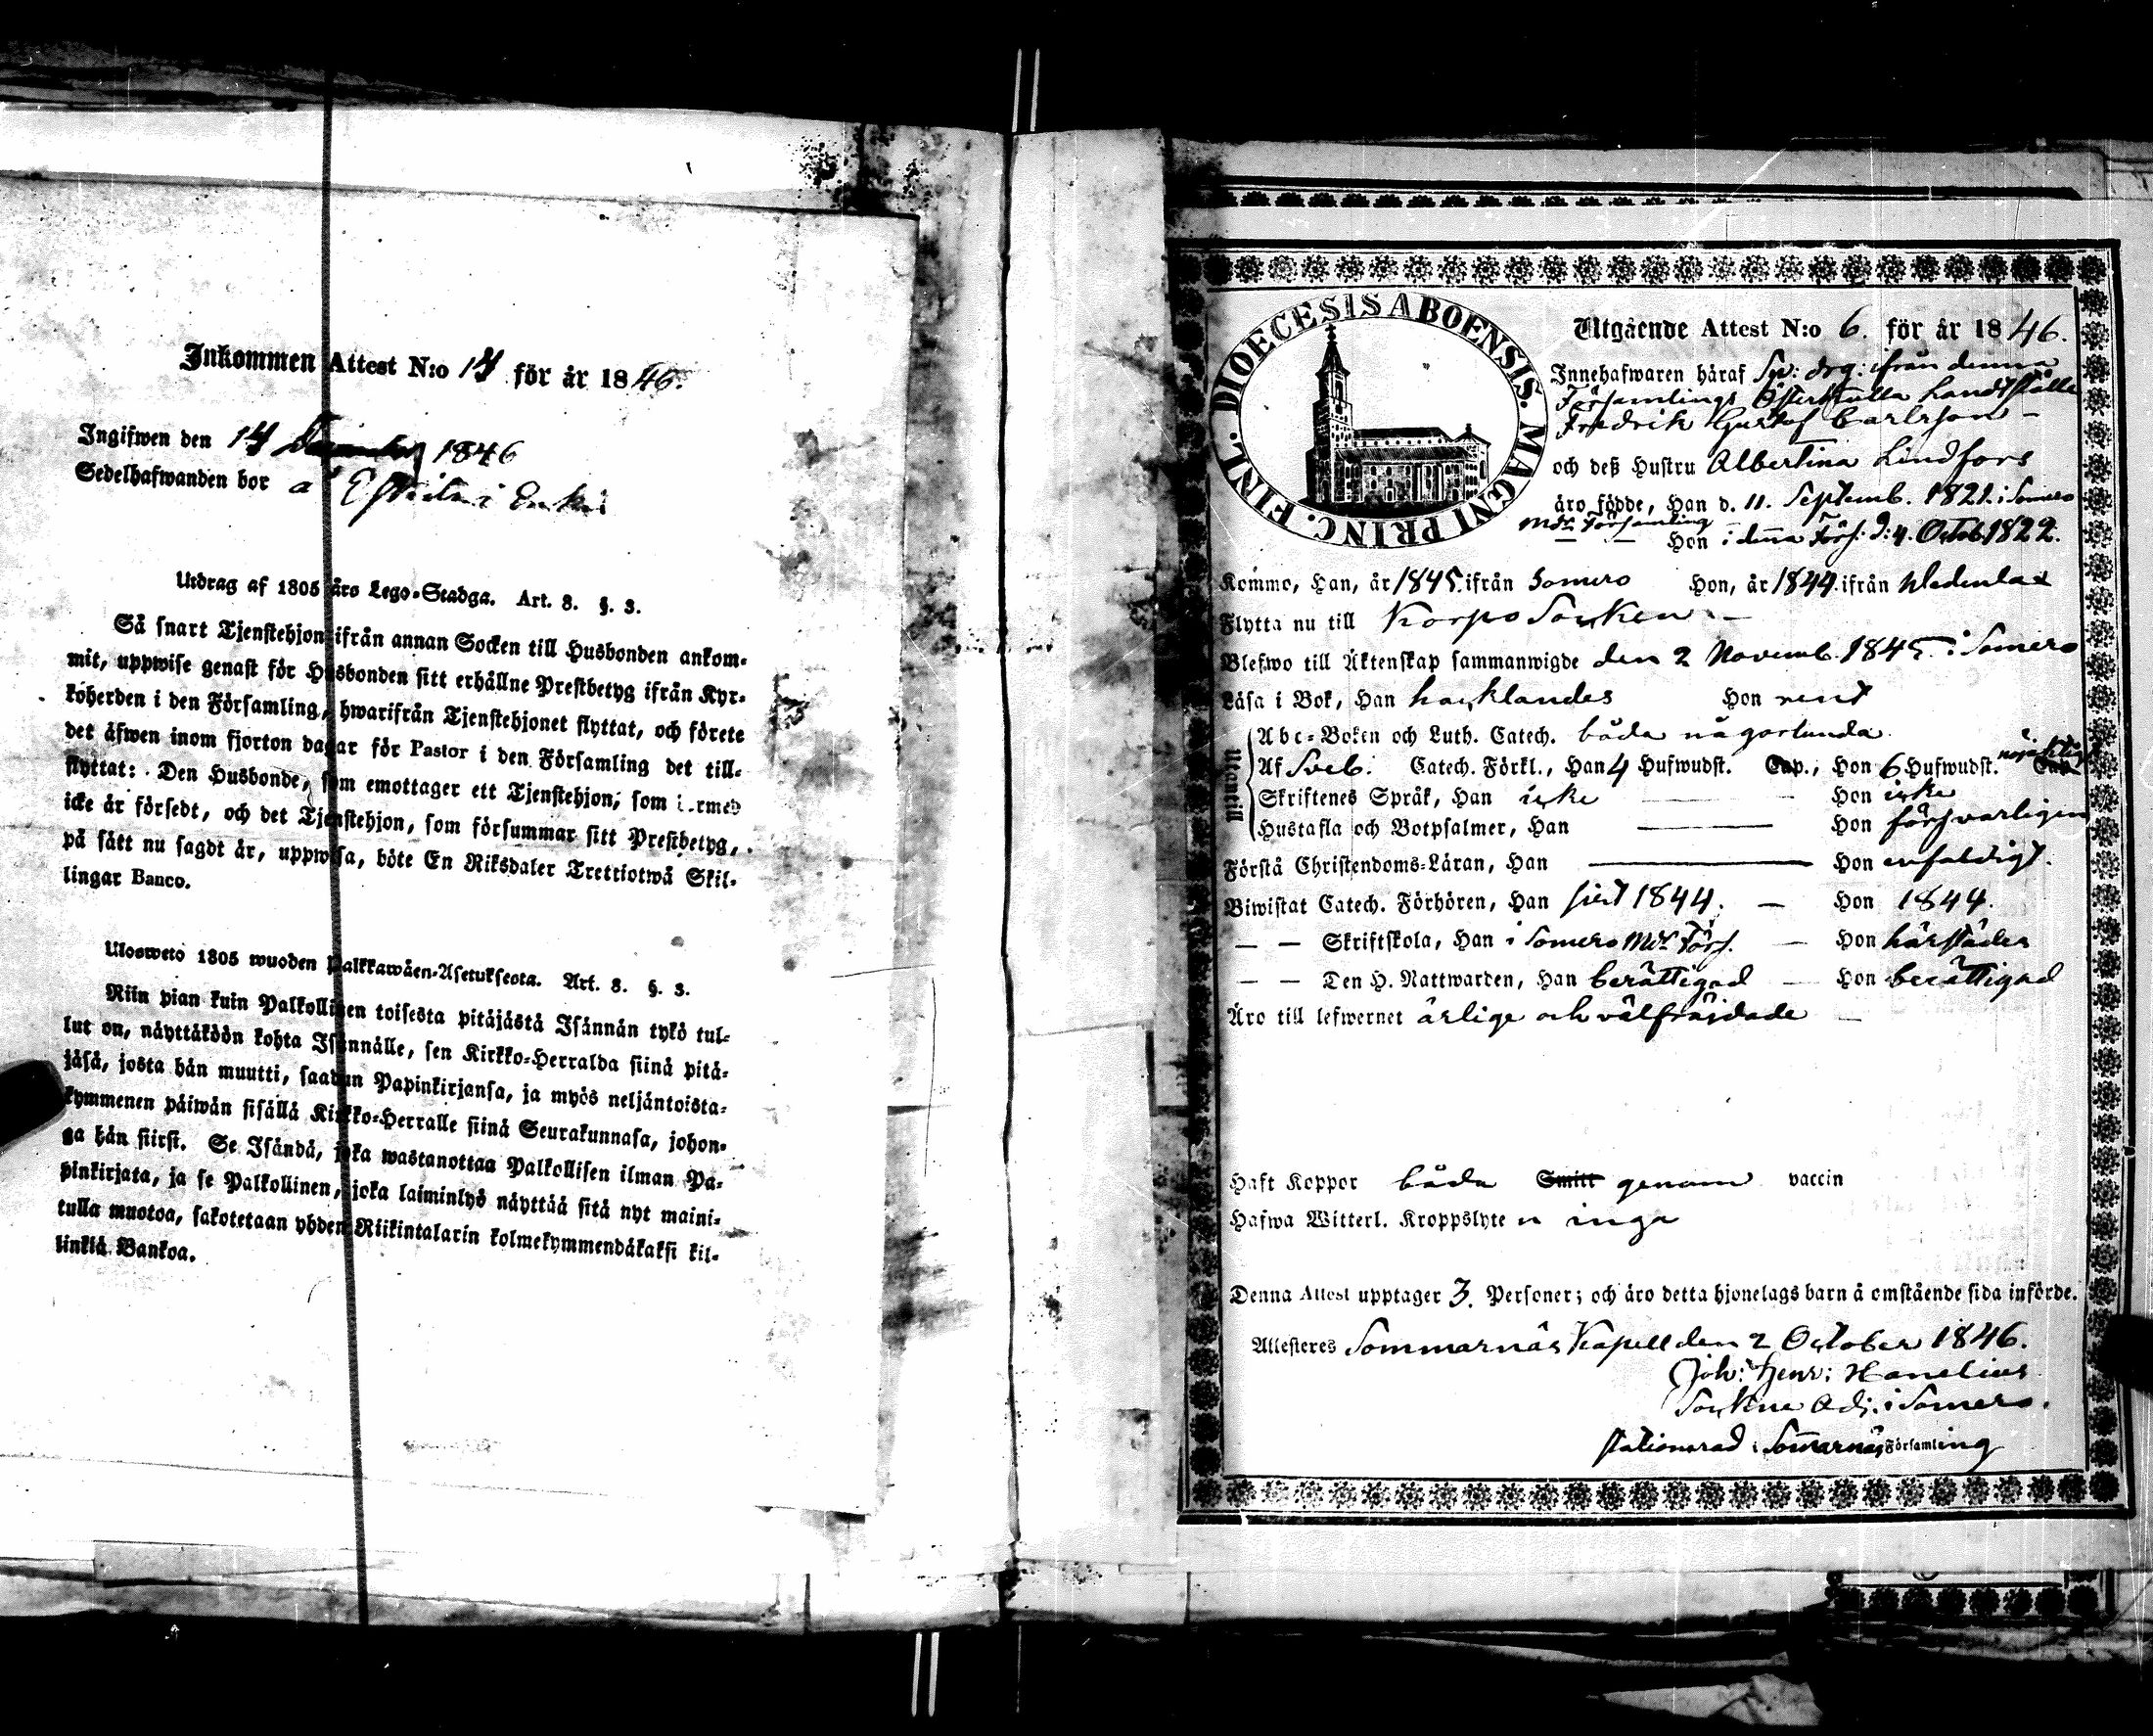 Inkommen Attest N:o 14 för år 1846.
Ingifwen den 14 December 1846
Sedelhafwanden bor å
Utdrag af 1805 års Lego-Stadga. Art. 8. §. 3.
Så snart Tjenstehjon ifrån annan Socken till Husbonden ankom-
mit, uppwise genast för Husbonden sitt erhållne Prestbetyg ifrån Kyr-
koherden i den Församling, hwarifrån Tjenstehjonet flyttat, och förete
det äfwen inom fjorton dagar för Pastor i den Församling det till-
flyttat: Den Husbonde, som emottager ett Tjenstehjon, som
icke är försedt, och det Tjenstehjon, som försummar sitt Prestbetyg,
på sätt nu sagdt är, uppwisa, böte En Riksdaler Trettiotwå Skil-
lingar Banco.
Ulosweto 1805 wuoden Palkkawäen-Asetukseota. Art. 8. §. 3.
Niin pian kuin Palkollinen toisesta pitäjästä Isännän tykö tul-
lut on, näyttäköön kohta Isännälle, sen Kirkko-Herralda siinä pitä-
jäsä, josta hän muutti, saadun Papinkirjansa, ja myös neljäntoista-
kymmenen päiwän sisällä Kirkko-Herralle siinä Seurakunnasa, johon-
ga hän siirsi. Se Isändä, joka wastanottaa Palkollisen ilman Pa-
pinkirjata, ja se Palkollinen, joka laiminlyö näyttää sitä nyt maini-
tulla muotoa, sakotetaan yhden Riikintalarin kolmekymmendäkaksi kil-
linkiä Bankoa.
DIOECESIS ABOENSIS. MAGNI PRINC. FINL.
Utgående Attest N:o 6. för år 1846.
Innehafwaren häraf Sv: drg: ifrån denna
Församlings Landtställe
Fredrik Gustaf Carlsson
och deß Hustru Albertina Lindfors
äro födde, Han d. 11. Septemb. 1821. i Somero
Mdr Församling
Hon i denna Förs: d: 4. Octob. 1822.
Kommo, Han, år 1845. ifrån Somero Hon, år 1844. ifrån
Flytta nu till Korpo Socken
Blefwo till Äktenskap sammanwigde den 2 Novemb. 1845. i Somero
Läsa i Bok, Han hacklandes Hon rent
Utantill
Abc-Boken och Luth. Catech. båda någorlunda
Af Sveb. Catech. Förkl., Han 4 Hufwudst. Cap., Hon 6 Hufwudst. Cap.
Skriftenes Språk, Han icke Hon icke
Hustafla och Botpsalmer, Han — Hon försvarligen
Förstå Christendoms-Läran, Han — Hon enfaldigt.
Biwistat Catech. Förhören, Han sist 1844. — Hon 1844.
— — Skriftskola, Han i Somero Mdr Förs. — Hon härstädes
— — Den H. Nattwarden, Han berättigad — Hon berättigad
Äro till lefwernet ärlige och välfräjdade —
Haft Koppor båda Smitt genom vaccin
Hafwa Witterl. Kroppslyten inga
Denna Attest upptager 3. Personer; och äro detta hjonelags barn å omstående sida införde.
Attesteres Sommarnäs Kapell den 2 October 1846.
Joh: Henr: Hanelius
Sockne Adj. i Somero.
stationerad i Sommarnäs Församling